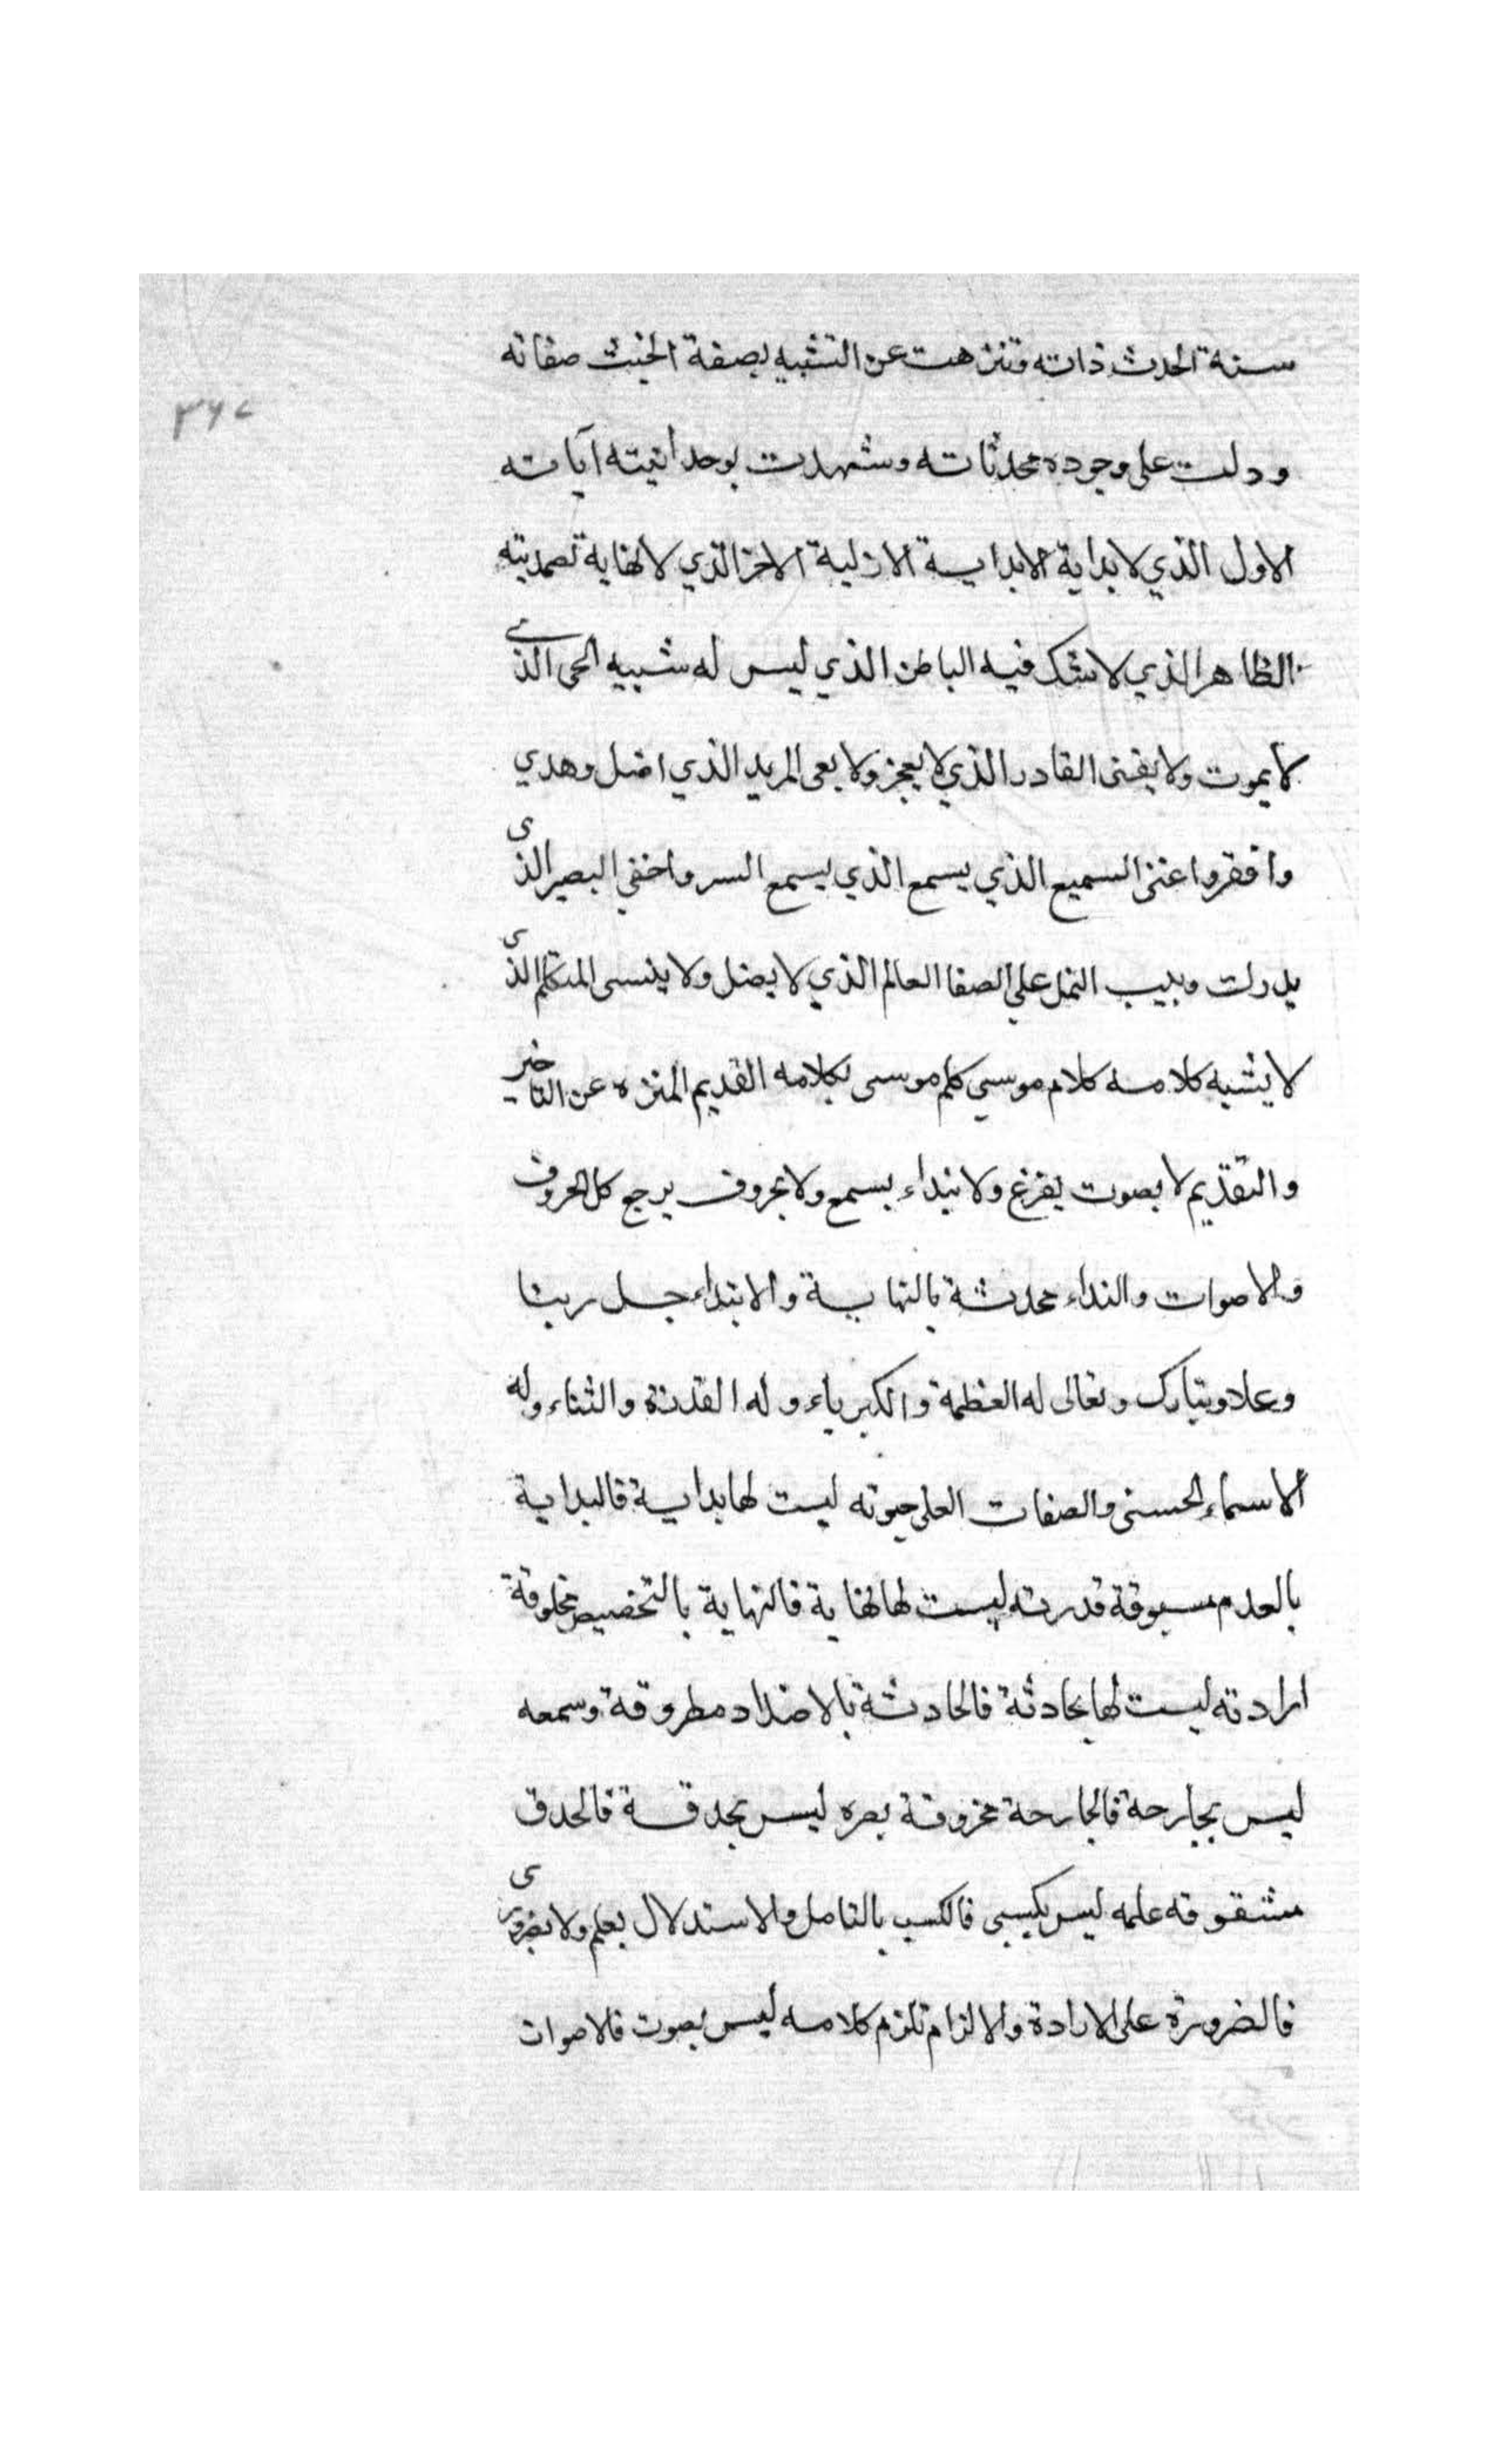 سنة الحدث ذاته وتنزهت عن التشبيه بصفة الخبث صفاته
٣٦٧
ودلت على وجوده محدثاته وشهدت بوحدانيته آياته
الاول الذي لا بداية الابداية الازلية الاخر الذي لا نهاية لصمديته
الظاهر الذي لا شك فيه الباطن الذي ليس له شبيه الحى الذي
لا يموت ولا يفنى القادر الذي لا يعجز ولا يعى المريد الذي اضل وهدي
وافقر واغنى السميع الذي يسمع الذي يسمع السر واخفي البصير الذى
يدرك وبيب النمل على الصفا العالم الذي لا يضل ولا ينسى المتكلم الذى
لا يشبه كلامه كلام موسي كلم موسى بكلامه القديم المنزه عن التاخير
والتقديم لا بصوت يفزع ولا بنداء يسمع ولا بحروف يرجع كل الحروف
والاصوات والنداء محدثة بالنهاية والابتداء جل ربنا
وعلا وتبارك وتعالى له العظمة والكبرياء وله القدرة والثناء وله
الاسماء الحسنى والصفات العلى حيوته ليست لها بداية فالبداية
بالعدم مسبوقة قدرته ليست لها نهاية فالنهاية بالتخصيص مخلوقة
ارادته ليست لها بحادثة فالحادثة بالاضداد مطروقة وسمعه
ليس بجارحة فالجارحة مخروقة بصره ليس بحدقة فالحدق
مشقوقه علمه ليس بكسبى فالكسب بالتامل والاستدلال يعلم ولا بضرورى
فالضرورة على الارادة والالزام تلزم كلامه ليس بصوت فالاصوات